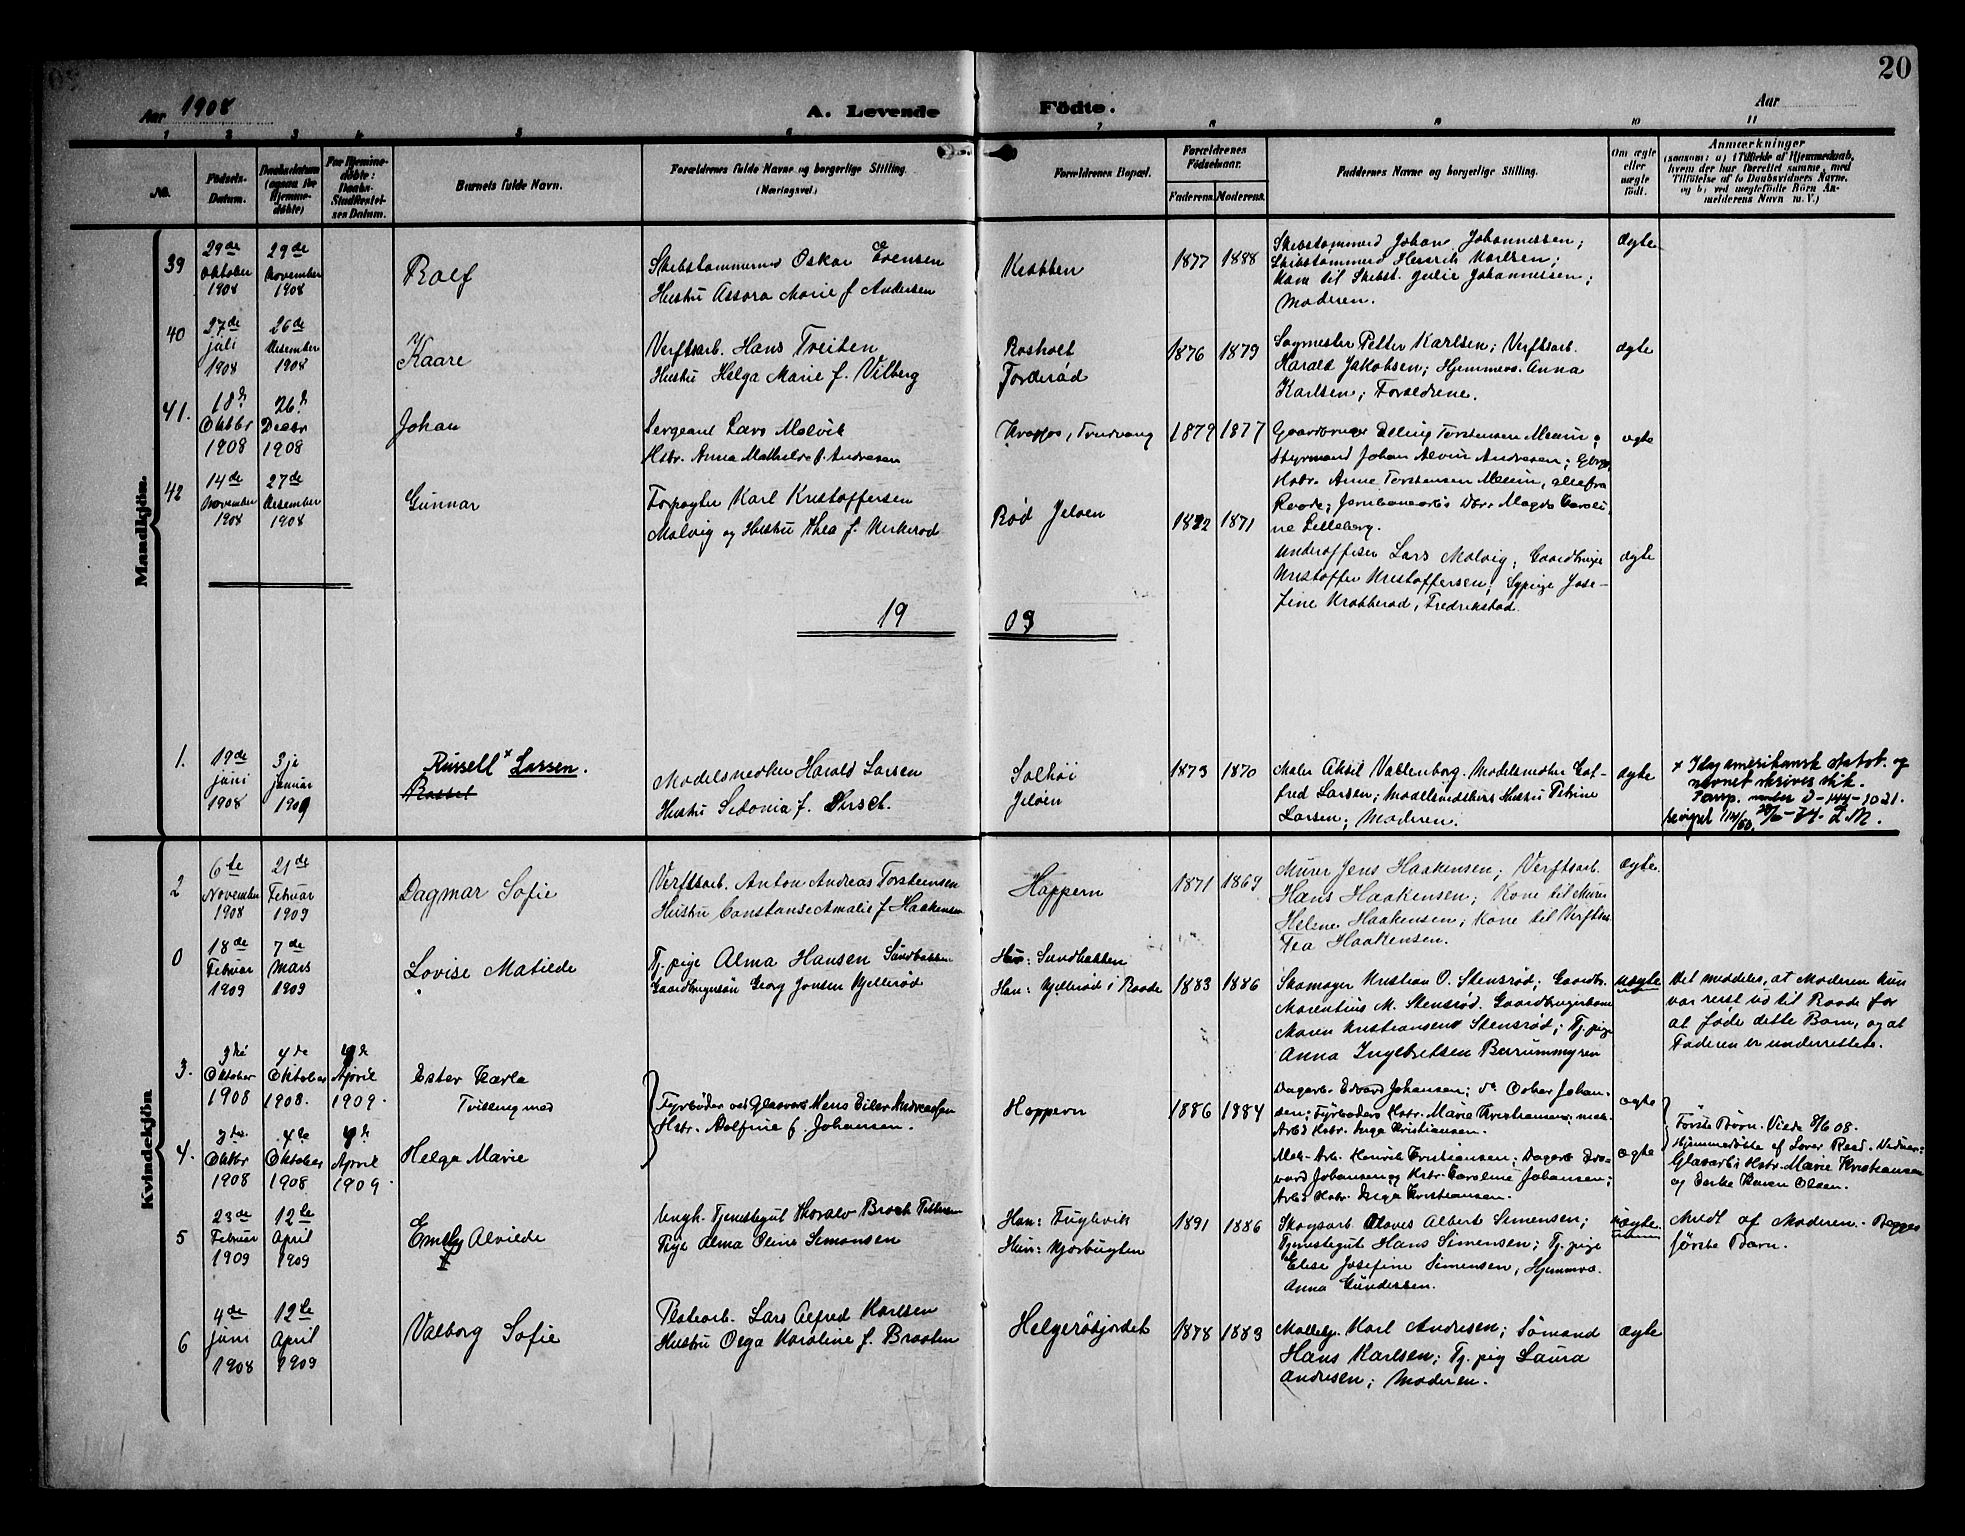 20
Aar 1908
A. Levende
Födte.
Aar
1 2 3 4 5 6 7 8 9 10 11
No.
Födsels-
Datum.
Daabsdatum
For Hjemme-
döbte:
Daabs-
Stadfæstel-
ses Datum.
Barnets fulde Navn.
Forældrenes fulde Navne og borgerlige Stilling.
(Næringsvei.)
Forældrenes Bopæl.
Forældrenes
Födselsaar.
Faderens.
Moderens.
Faddernes Navne og borgerlige Stilling.
Om ægte
eller
uægte
födt.
Anmærkninger
(saasom: a) i Tilfælde af Hjemmedaab,
hvem der har forrettet samme, med
Tilföielse af to Daabsvidners Navne,
og b) ved uægtefödte Börn An-
melderens Navn m. V.)
Mandkjön.
39
29de
Oktober
1908
29de
November
1908
Rolf
Skibstømmermd Oskar Evensen
Hustru Assora Marie f. Andersen
Krabben
1877 1888
Skibstømmermd Johan Johannessen;
Skibstømmermd Henrik Karlsen;
Kone til Skibst. Julie Johannessen;
Moderen.
ægte
40
27de
juli
1908
26de
Desember
1908
Kaare
Verftsarb. Hans Treiten
Hustru Helga Marie f. Vilberg
Rosholt
Torderød
1876 1879
Sagmester Petter Karlsen; Verftsarb.
Harald Jakobsen; Hjemmev. Anna
Karlsen; Forældrene.
ægte
41.
18d
Oktbr
1908
26d
Decbr
1908
Johan
Sergeant Lars Malvik
Hstr. Anna Mathilde f. Andresen
Krapfos, Trudvang
1879 1877
Gaardbruger Elling Torstensen Meum;
Styrmand Johan Alvin Andresen; Gbrgs
Hstr. Anne Torstensen Meum, alle fra
Raade; Jernbanearb's Dtr. Magda Caroli-
ne Lilleberg.
ægte
42
14de
November
1908
27de
Desember
1908
Gunnar
Forpagter Karl Kristoffersen
Malvig og Hustru Thea f. Kirkerød
Rød Jeløen
1882 1871
Underoffiser Lars Malvig; Gaardbruger
Kristoffer Kristoffersen; Sypige Jose-
fine Krabberød, Fredrikstad.
ægte
19 09
1.
19de
juni
1908
3je
Januar
1909
Russell x Larsen.
Modelsnedker Harald Larsen
Hustru Sidonia f. Hirsch.
Solhøi
Jeløen
1873 1870
Maler Aksel Vallenborg. Modelsnedker Got-
fred Larsen; Modelsnedkers Hustru Petrine
Larsen; Moderen.
ægte
Kvindekjön
2
6te
November
1908
21de
Februar
1909
Dagmar Sofie
Verftsarb. Anton Andreas Torstensen
Hustru Constanse Amalie f. Haakensen
Hoppern
1871 1869
Murer Jens Haakensen; Verftsarb.
Hans Haakensen; Kone til Murer
Helene Haakensen; Kone til Verftsa.
Tea Haakensen.
ægte
0
18de
Februar
1909
7de
Mars
1909
Lovise Matilde
Tj. pige Alma Hansen Sandbakken
Gaardbrugersøn Georg Jonsen Kjellerød
Hun: Sandbakken
Han: Kjellerød i Raade
1883 1886
Skomager Kristian O. Stensrød; Gaardbr.
Marentius M. Stensrød. Gaardbrugerkone
Maren Kristiansen Stensrød; Tj. pige
Anna Ingebretsen Barummyren
uægte
Det meddeles, at Moderen kun
var reist ud til Raade for
at føde dette Barn, og at
Faderen er underrettet.
3.
3die
Oktober
1908
4de
Oktober
1908.
April
1909.
Ester Karla
Tvilling med
Fyrbøder ved Glasverk Mens Eiler Andreassen
Hstr. Adolfine f. Johansen.
Hoppern
1886 1884
Dagarb. Edvard Johansen; do Oskar Johan-
sen; Fyrbøders Hstr. Marie Kristiansen; mek.
Arb's Hstr. Inga Kristiansen.
ægte
Første Børn. Viede 8/6 08.
Hjemmedøbte af Lover Reed. Vidner:
Glasarb's Hstr. Marie Kristiansen
og Enke Karen Olsen.
4.
3die
Oktbr
1908
4de
Oktober
1908
April
1909.
Helga Marie
Mek. Arb. Henrik Kristiansen; Dagarb. Ed-
vard Johansen og Hstr. Caroline Johansen;
Arb's Hstr. Inga Kristiansen.
ægte
5
23de
Februar
1909
12te
April
1909
Emely Alvilde
Ungk. Tjenestegut Thoralv Brock Pettersen
Pige Alma Oline Simonsen
Han: Fuglevik
Hun: Kjærbugten
1891 1886
Skogsarb. Olaves Albert Simensen;
Tjenestegut Hans Simensen; Tj. pige
Elise Josefine Simensen; Hjemmev.
Anna Gundersen.
uægte
Meldt af Moderen. Begges
første Barn.
6
4de
juni
1908
12te
April
1909
Valborg Sofie
Pladearb. Lars Alfred Karlsen
Hustru Olga Karoline f. Braaten
Helgerødjordet
1878 1883
Møllebg. Karl Andresen; Sømand
Hans Karlsen; Tj. pig Laura
Andresen; Moderen.
ægte